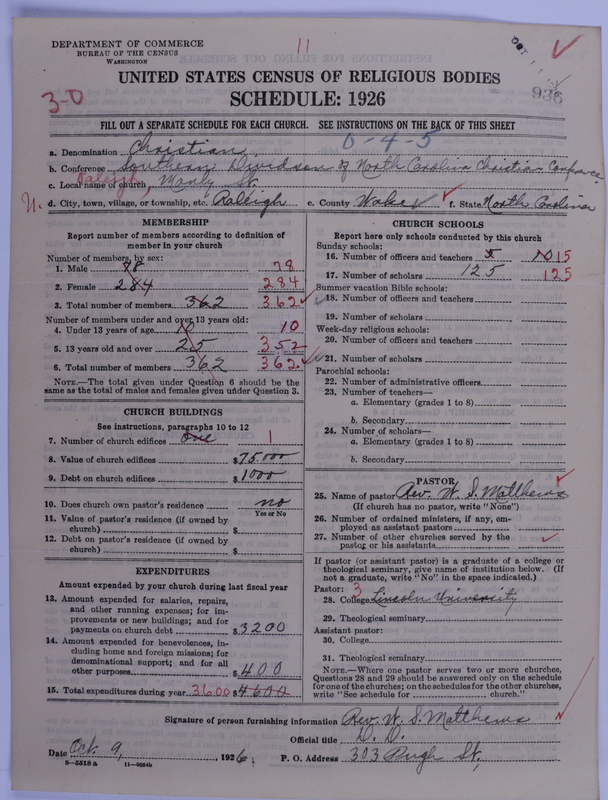 DEPARTMENT OF COMMERCE
BUREAU OF THE CENSUS
WASHINGTON
11
936
UNITED STATES CENSUS OF RELIGIOUS BODIES
3-0
SCHEDULE: 1926
FILL OUT A SEPARATE SCHEDULE FOR EACH CHURCH. SEE INSTRUCTIONS ON THE BACK OF THIS SHEET
0-4-5
a. Denomination Christian
b. Conference Southern Division of North Carolina Christian Conference
c. Local name of church, Manly St.
d. City, town, village, or township, etc. Raleigh e. County Wake f. State North Carolina
MEMBERSHIP
Report number of members according to definition of member in your church
Number of members by sex:
1. Male 78 78
2. Female 284 284
3. Total number of members 362 362
Number of members under and over 13 years old:
4. Under 13 years of age 10 10
5. 13 years old and over 25 352
6. Total number of members 362 362
NOTE.—The total given under Question 6 should be
same as the total of males and females given under Question 3.
CHURCH BUILDINGS
See instructions, paragraphs 10 to 12
7. Number of church edifices One 1
8. Value of church edifices $75,000
9. Debt on church edifices $1000
10. Does church own pastor's residence no
Yes or No
11. Value of pastor's residence (if owned by
church) $
12. Debt on pastor's residence (if owned by
church) $
EXPENDITURES
Amount expended by your church during last fiscal year
13. Amount expended for salaries, repairs,
and other running expenses; for im-
provements or new buildings; and for
payments on church debt $3200
14. Amount expended for benevolences, in-
cluding home and foreign missions; for
denominational support; and for all
other purposes $400
15. Total expenditures during year 3600 $4600
CHURCH SCHOOLS
Report here only schools conducted by this church
Sunday schools:
16. Number of officers and teachers 5 15
17. Number of scholars 125 125
Summer vacation Bible schools:
18. Number of officers and teachers
19. Number of scholars
Week-day religious schools:
20. Number of officers and teachers
21. Number of scholars
Parochial schools:
22. Number of administrative officers
23. Number of teachers—
a. Elementary (grades 1 to 8)
b. Secondary
24. Number of scholars—
a. Elementary (grades 1 to 8)
b. Secondary
PASTOR
25. Name of pastor Rev. W. S. Matthews
(If church has no pastor, write "None")
26. Number of ordained ministers, if any, em-
ployed as assistant pastors
27. Number of other churches served by the
pastor or his assistants
If pastor (or assistant pastor) is a graduate of a college or
theological seminary, give name of institution below. (If
not a graduate, write "No" in the space indicated.)
Pastor: 3
28. College Lincoln University
29. Theological seminary
Assistant pastor:
30. College
31. Theological seminary
NOTE.—Where one pastor serves two or more churches,
Questions 28 and 29 should be answered only on the schedule
for one of the churches; on the schedules for the other churches,
write "See schedule for church."
Signature of person furnishing information Rev. W. S. Matthews
Official title D. D.
Date Oct. 9, 1926. P. O. Address 303 Pugh St,
8—5518 a